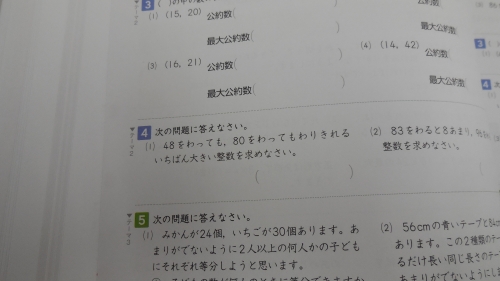 3
(1) (15, 20) 公約数(
最大公約数(
)
(4) (14, 42)
(3) (16, 21) 公約数(
)
最大公約数(
)
4 次の問題に答えなさい。
(1) 48をわっても，80をわってもわりきれる
いちばん大きい整数を求めなさい。
( )
(2) 83をわると8あまり，
整数を求めなさい。
5 次の問題に答えなさい。
(1) みかんが24個，いちごが30個あります。あ
まりがでないように2人以上の何人かの子ども
にそれぞれ等分しようと思います。
(2) 56cmの青いテープと
あります。この2種類の
るだけ長い同じ長さのテー
あまりがでないように